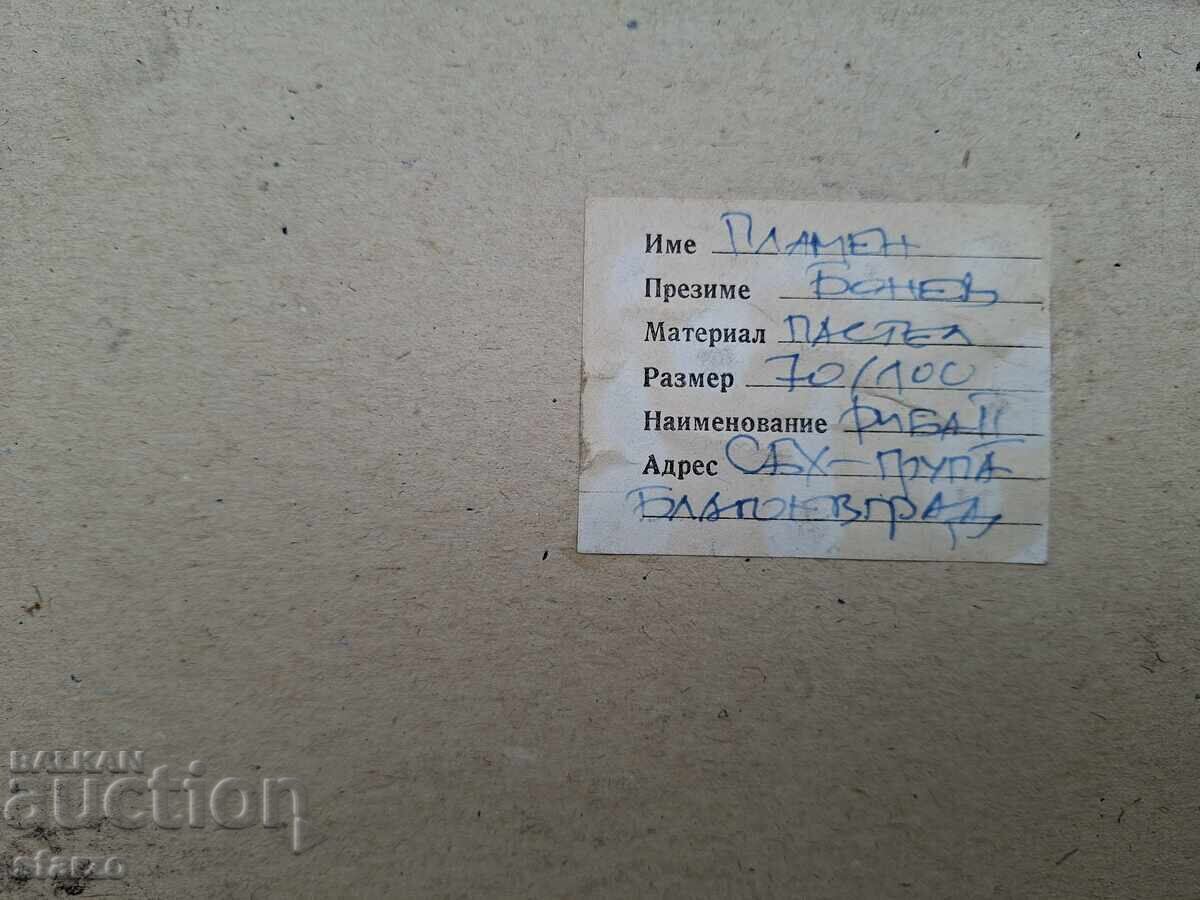 Име Пламен
Презиме Бонев
Материал пастел
Размер 70/100
Наименование Риба II
Адрес СБХ-група
Благоевград
BALKAN
auction
sfarzo